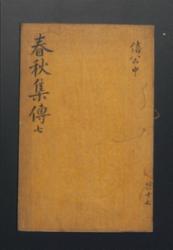 春秋集傳 七
僖公中